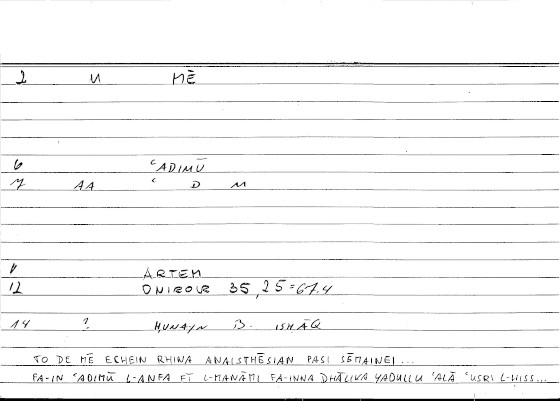 2 U MĒ
6 ʿADIMŪ
7 AA ʿ D M
11 ARTEM
12 ONIROCR 35,25=67.4
14 ? ḤUNAYN B. ISḤĀQ
TO DE MĒ ECHEIN RHINA ANAISTHĒSIAN PASI SĒMAINEI...
FA-IN ʿADIMŪ L-ANFA FĪ L-MANĀMI FA-INNA DHĀLIKA YADULLU ʿALĀ ʿUSRI L-ḤISS...